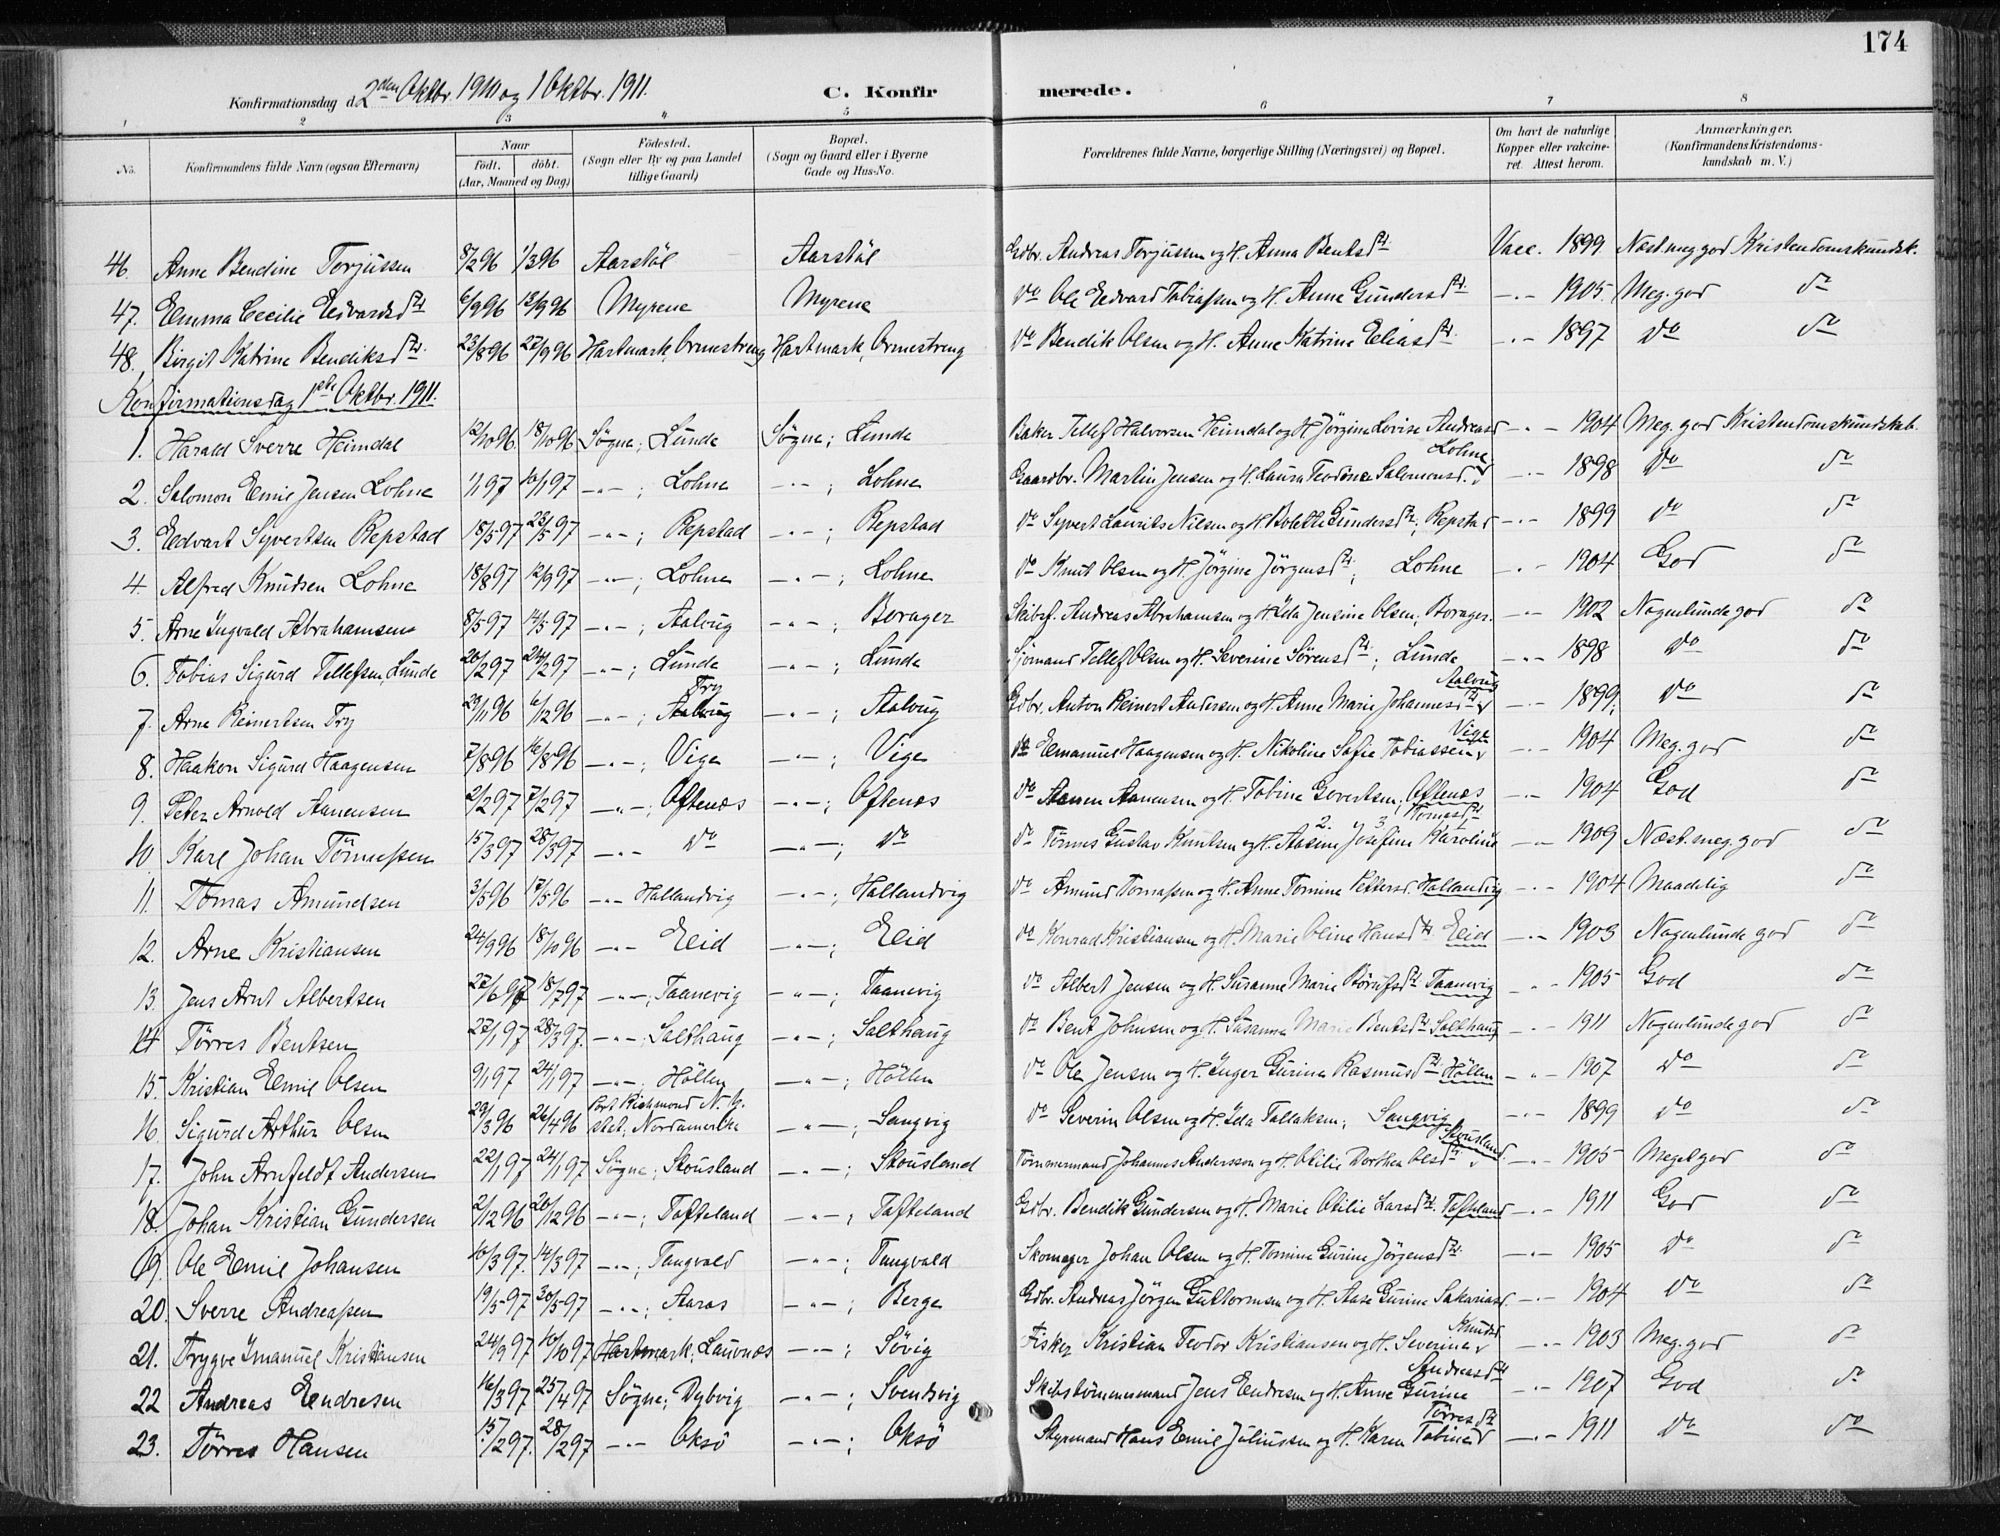 174
Konfirmationsdag d. 2den Oktbr. 1910 og 1 Oktbr. 1911. C. Konfirmerede.
1 2 3 4 5 6 7 8
No. Konfirmandens fulde Navn (ogsaa Efternavn) Naar födt. döbt. (Aar, Maaned og Dag) Födested. (Sogn eller By og paa Landet tillige Gaard) Bopæl. (Sogn og Gaard eller i Byerne Gade og Hus-No. Forældrenes fulde Navne, borgerlige Stilling (Næringsvei) og Bopæl. Om havt de naturlige Kopper eller vaccineret. Attest herom. Anmærkninger. (Konfirmandens Kristendomskundskab m. V.)
46. Anne Bendine Torjussen 8/2 96 1/3 96 Aarstöl Aarstöl Gdbr. Andreas Torjussen og H. Anna Bentsdt. Vacc. 1899 Næst. meg god Kristendomskundsk.
47. Emma Cecilie Edvardsdt. 6/9 96 13/9 96 Myrene Myrene do Ole Edvard Tobiassen og H. Anne Gundersdt. -"- 1905. Meg. god do
48. Birgit Katrine Bendiksdt. 23/8 96 27/9 96 Hartmark, Ormestreng Hartmark, Ormestreng do Bendik Olsen og H. Anne Katrine Eliasdt. -"- 1897 do do
Konfirmationsdag 1ste Oktbr. 1911.
1. Harald Sverre Heimdal 12/10 96 18/10 96 Søgne; Lunde Søgne; Lunde Baker Tellef Halvorsen Heimdal og H. Jörgine Lovise Andreasd -"- 1904 Meg. god Kristendomskundskab.
2. Salomon Emil Jensen Lohne 1/1 97 10/1 97 -"-; Lohne -"-; Lohne Gaardbr. Martin Jensen og H. Laura Teodine Salomonsd. Lohne -"- 1898 do do
3. Edvart Syvertsen Repstad 18/5 97 23/5 97 -"-; Repstad -"-; Repstad do Syvert Laurits Nilsen og H. Bolette Gundersdt; Repstad -"- 1899 do do
4. Alfred Knudsen Lohne 18/8 97 12/9 97 -"-; Lohne -"-; Lohne do Knut Olsen og H. Jörgine Jörgensdt; Lohne -"- 1904 God do
5. Arne Ingvald Abrahamsen 8/5 97 14/5 97 -"-; Aalvug -"-; Borager Skibsf. Andreas Abrahamsen og H. Ida Jensine Olsen; Borager. -"- 1902 Nogenlunde god do
6. Tobias Sigurd Tellefsen, Lunde 20/2 97 24/2 97 -"-; Lunde -"-; Lunde Sjömand Tellef Olsen og H. Severine Sørensdt; Lunde -"- 1898 do do
7. Arne Reinertsen Try 29/11 96 6/12 96 -"-; Try -"-; Aalvug Gdbr. Anton Reinert Andersen og H. Anne Marie Johannesdt. Aalvug -"- 1899; do do
8. Haakon Sigurd Haagensen 7/8 96 16/8 96 -"-; Vige -"-; Vige do Emanuel Haagensen og H. Nikoline Sofie Tobiassen Vige -"- 1904 Meg. god do
9. Peter Arnold Aanensen 2/2 97 7/2 97 -"-; Oftenæs -"-; Oftenæs do Aanen Aanensen og H. Tobine Govertsen, Oftenæs -"- 1904 God do
10. Karl Johan Tönnessen 15/3 97 28/3 97 -"- do -"-; do do Tönnes Gustav Knutsen og H. Aasine Josefine Karoline Tomasdt -"- 1909 Næst. meg. god do
11. Tomas Amundsen 3/5 96 17/5 96 -"- Hallandvig -"-; Hallandvig do Amund Tomassen og H. Anne Tomine Pettersd. Hallandvig -"- 1904 Maadelig do
12. Arne Kristiansen 24/9 96 18/10 96 -"- Eid -"-; Eid do Konrad Kristiansen og H. Marie Oline Hansdt Eid -"- 1903 Nogenlunde god do
13. Jens Arnt Albertsen 27/6 97 18/7 97 -"-; Taanevig -"-; Taanevig do Albert Jensen og H. Susanne Marie Börufsdt Taanevig -"- 1905 God do
14. Tørres Bentsen 27/1 97 28/3 97. -"-; Salthaug -"-; Salthaug do Bent Johnsen og H. Susanna Marie Bentsdt Salthaug -"- 1911 Nogenlunde god do
15. Kristian Emil Olsen 9/1 97 24/1 97 -"-; Höllen -"-; Höllen do Ole Jensen og H. Inger Gurine Rasmusdt Höllen -"- 1907 do do
16. Sigurd Arthur Olsen 29/3 96 26/4 96 Port Richmond N. Y. stat; Nordamerika -"-; Langvig do Severin Olsen og H. Ida Tallaksen; Langvig -"- 1899 do do
17. John Arnfeldt Andersen 22/1 97 24/1 97 Søgne; Skousland -"-; Skousland Tømmermand Johannes Andersson og H. Otilie Dorthea Olsdt. Skousland -"- 1905 Meget god do
18. Johan Kristian Gundersen 2/12 96 20/12 96 -"-; Tofteland -"-; Tofteland Gdbr. Bendik Gundersen og H. Marie Otilie Larsdt. Tofteland -"- 1911 God do
19. Ole Emil Johansen 10/3 97. 14/3 97 -"-; Tangvald -"-; Tangvald Skomager Johan Olsen og H. Tomine Gurine Jörgensdt. -"- 1905 do do
20. Sverre Andreassen 19/5 97 30/5 97 -"-; Aaros -"-; Berge Gdbr. Andreas Jörgen Guttormsen og H. Aase Gurine Sakariasd. -"- 1904 do do
21. Trygve Imanuel Kristiansen 24/9 97 10/10 97 Hartmark; Laurnæs -"-; Søvig Fisker Kristian Teodor Kristiansen og H. Severine Knudsd -"- 1903 Meg. god do
22 Andreas Endresen 16/3 97 25/4 97 Søgne; Dybvig -"-; Svendvig Skibstömmermand Jens Endresen og H. Anne Gurine Andreasdt -"- 1907 God do
23. Tørres Hansen 15/2 97. 28/2 97 -"- Oksö -"-; Oksö Styrmand Hans Emil Juliussen og H. Karen Tobine Tørresdt -"- 1911 do do